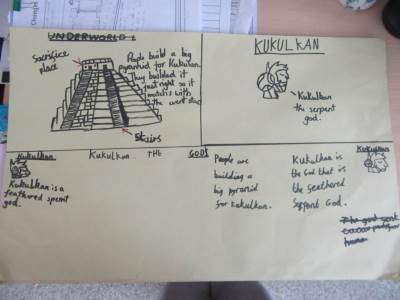 UNDERWORLD
Sacrifice
place
People build a big
pyramid for Kukulkan.
They builded it
just right so it
matchs with
the
Stairs
KUKULKAN
Kukulkan
the serpent
god.
Kukulkan
Kukulkan is a
feathered
god.
Kukulkan THE GODS
People are
building a
big pyramid
for Kukulkan.
Kukulkan is
the God that is
the feathered
Serpent God.
Kukulkan